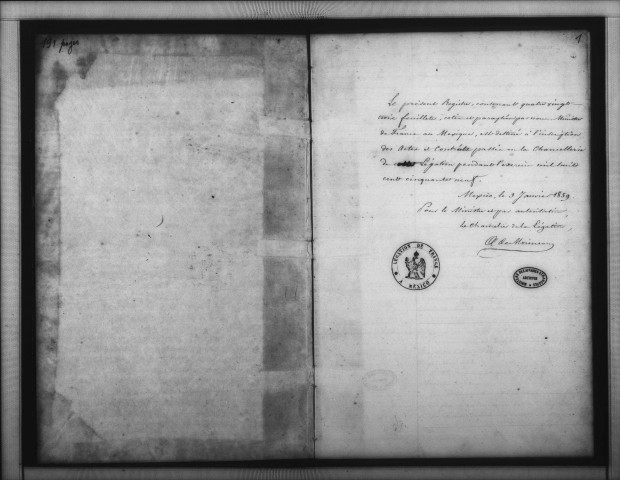 191 pages
1
Le présent Registre, contenant quatre vingt
seize feuillets, cotés et paraphés par nous Ministre
de France au Mexique, est destiné à l'inscription
des Actes et Contrats passés en la Chancellerie
de cette Légation pendant l'exercice mil huit
cent cinquante neuf.
Mexico, le 3 Janvier 1859
Pour le Ministre et par autorisation,
Le Chancelier de la Légation,
LEGATION DE FRANCE
A MEXICO
ARCHIVES